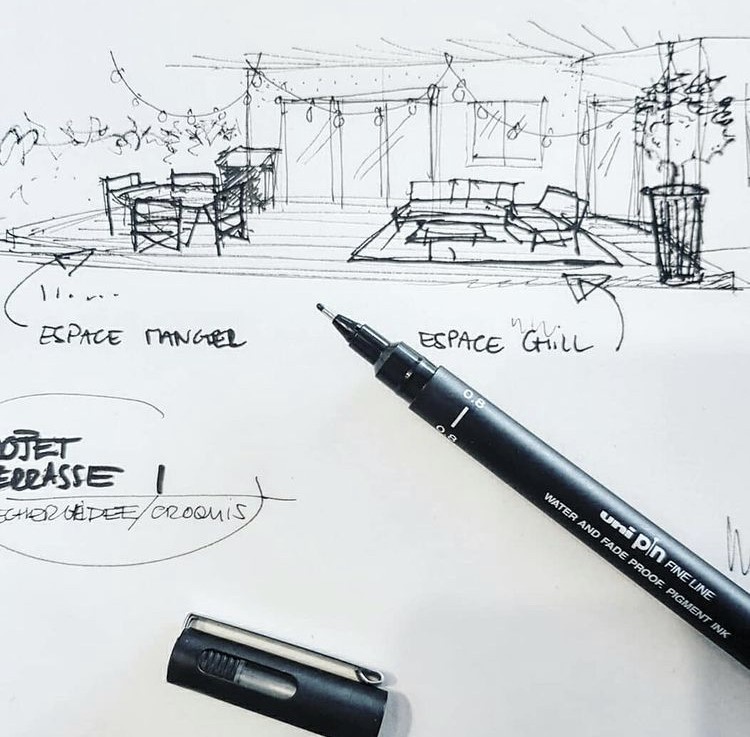 ESPACE MANGER
ESPACE CHILL
OJET
ERRASSE 1
ECHERCHE IDEE/CROQUIS
0.8
0.8
uni pin FINE LINE
WATER AND FADE PROOF, PIGMENT INK